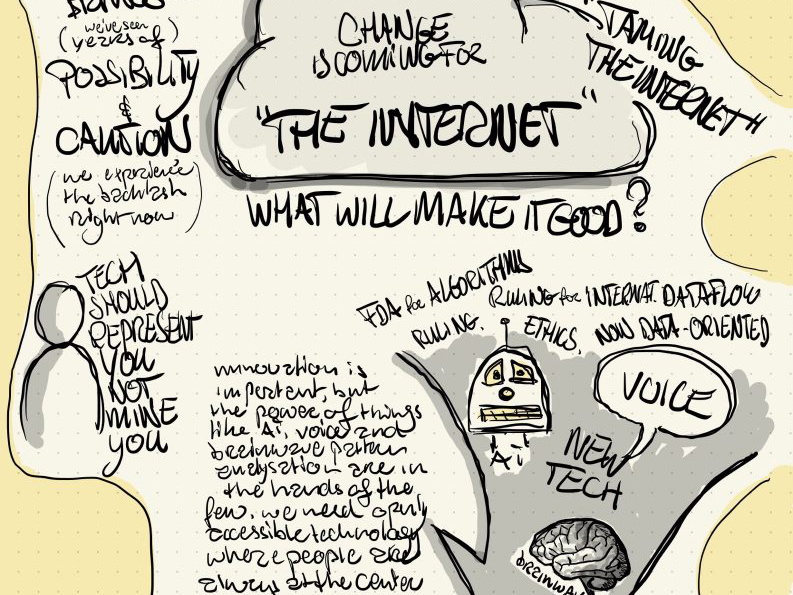 (we've seen
years of)
POSSIBILITY
&
CAUTION
(we experience
the backlash
right now)
CHANGE
IS COMING FOR
"THE INTERNET"
"TAMING
THE INTERNET"
WHAT WILL MAKE IT GOOD?
TECH
SHOULD
REPRESENT
YOU
NOT
MINE
YOU
innovation is
important, but
the power of things
like Ai, voice and
brainwave pattern
analysation are in
the hands of the
few. we need openly
accessible technology
where people are
always at the center
FDA for ALGORITHMS
RULING for INTERNAT. DATAFLOW
RULING. ETHICS, NOW DATA-ORIENTED
Ai
VOICE
NEW
TECH